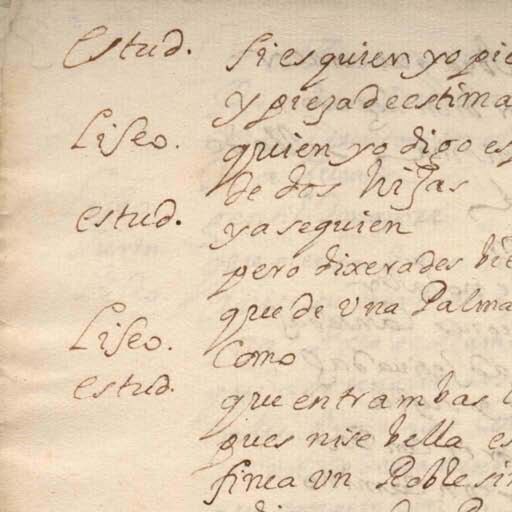 Estud. si es quien yo pie
y pieza de estima
Liseo. quien yo digo es p
de dos hijas
estud. ya se quien
pero dixerades bie
que de una Palma
Liseo. Como
estud. que entrambas l
pues nise bella es
finea un Roble sin